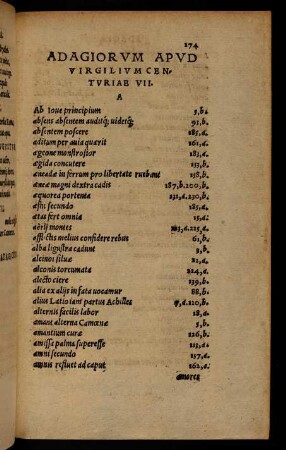 274
ADAGIORVM APVD
VIRGILIVM CEN-
TVRIAE VII.
A
Ab Ioue principium 5,b.
absens absentem auditq; uidetq; 95,b.
absentem poscere 185,d.
aditum per auia quærit 161,d.
ægeone monstrosior 183,d.
ægida concutere 155,b.
æneadæ in ferrum pro libertate ruebant 158,b.
æneæ magni dextra cadis 187,b.200,b.
æquorea portenta 231,d.230,b.
æstu secundo 185,d.
ætas fert omnia 15,d.
aërij montes d.225,d.
afflictis melius confidere rebus 61,b.
alba ligustra cadunt 3,b.
alcinoi siluæ 21,d.
alconis torcumata 224,d.
alecto ciere 159,b.
alia ex alijs in fata uocamur 88,b.
alius Latio iam partus Achilles d.120,b.
alternis facilis labor 18,d.
amant alterna Camœnæ 5,b.
amantium curæ 126,b.
amissæ palmæ superesse 213,d.
amni secundo 157,d.
amnis refluet ad caput 162,d.
amores